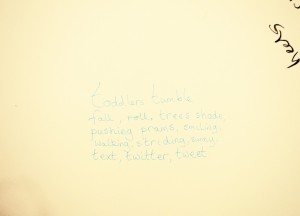 Toddlers tumble
fall, roll, trees shade
pushing prams, smiling
walking, striding, sunny
text, twitter, tweet